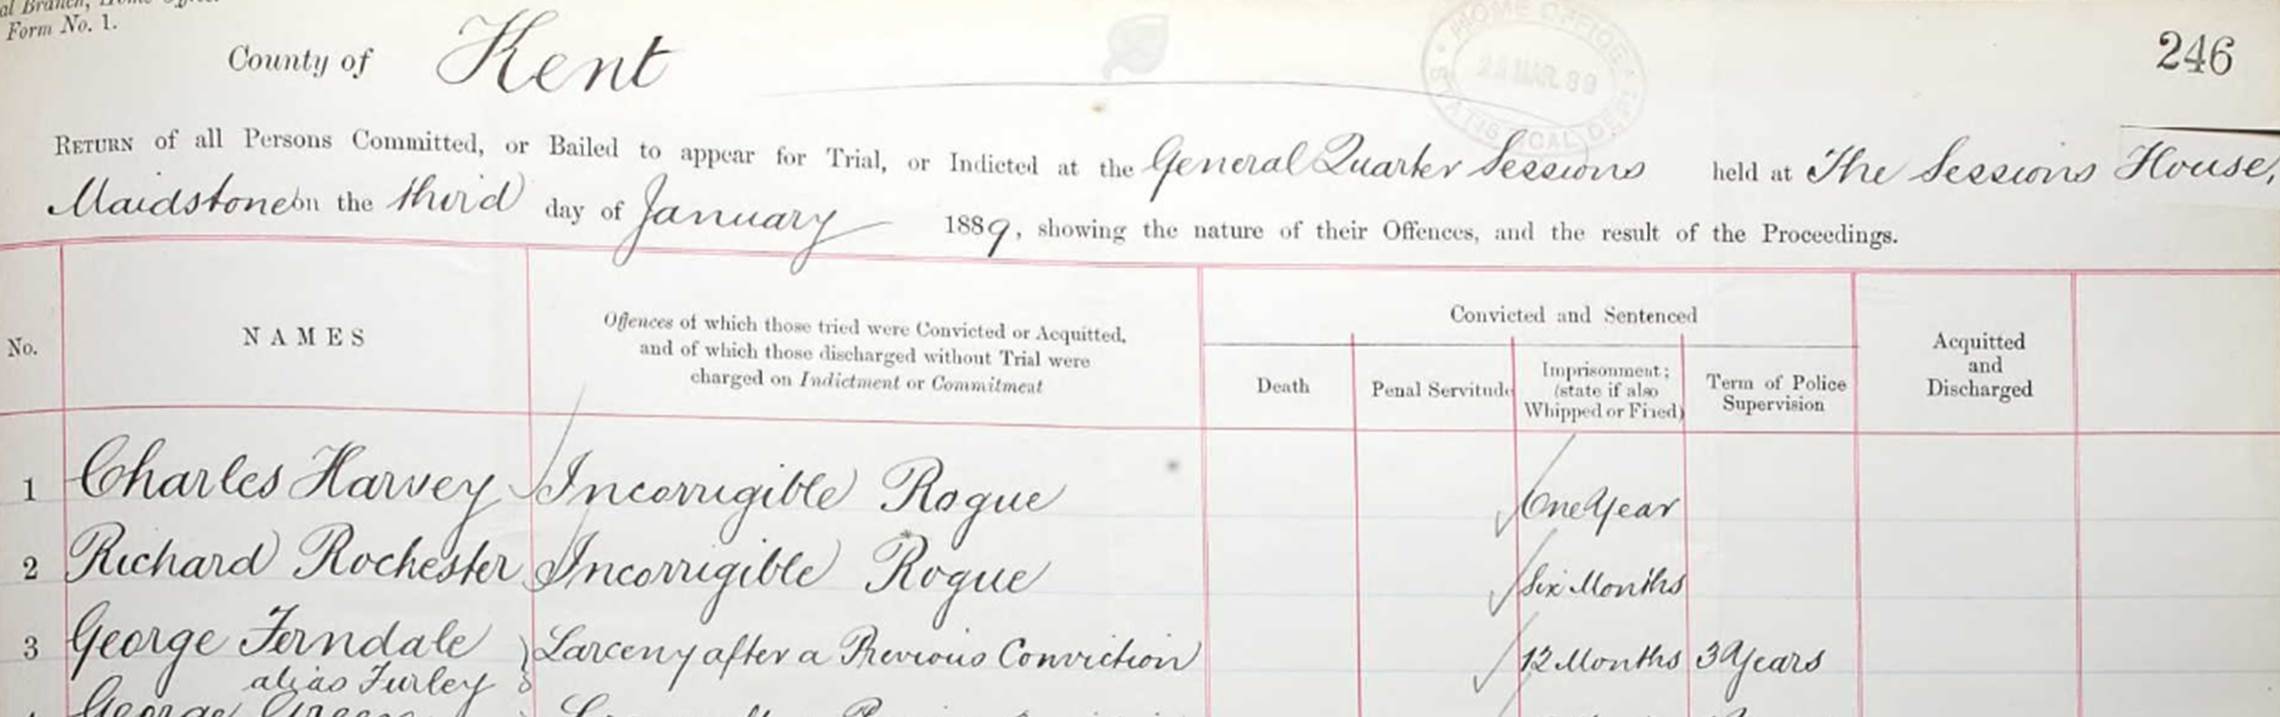 Form No. 1.
County of Kent
246
HOME OFFICE
MAR. 89
RETURN of all Persons Committed, or Bailed to appear for Trial, or Indicted at the General Quarter Sessions held at The Sessions House,
Maidstone on the third day of January 1889, showing the nature of their Offences, and the result of the Proceedings.
No.
NAMES
Offences of which those tried were Convicted or Acquitted,
and of which those discharged without Trial were
charged on Indictment or Commitment
Convicted and Sentenced
Death
Penal Servitude
Imprisonment;
(state if also
Whipped or Fined)
Term of Police
Supervision
Acquitted
and
Discharged
1 Charles Harvey Incorrigible Rogue One Year
2 Richard Rochester Incorrigible Rogue Six Months
3 George Ferndale Larceny after a Previous Conviction 12 Months 3 Years
alias Furley
George